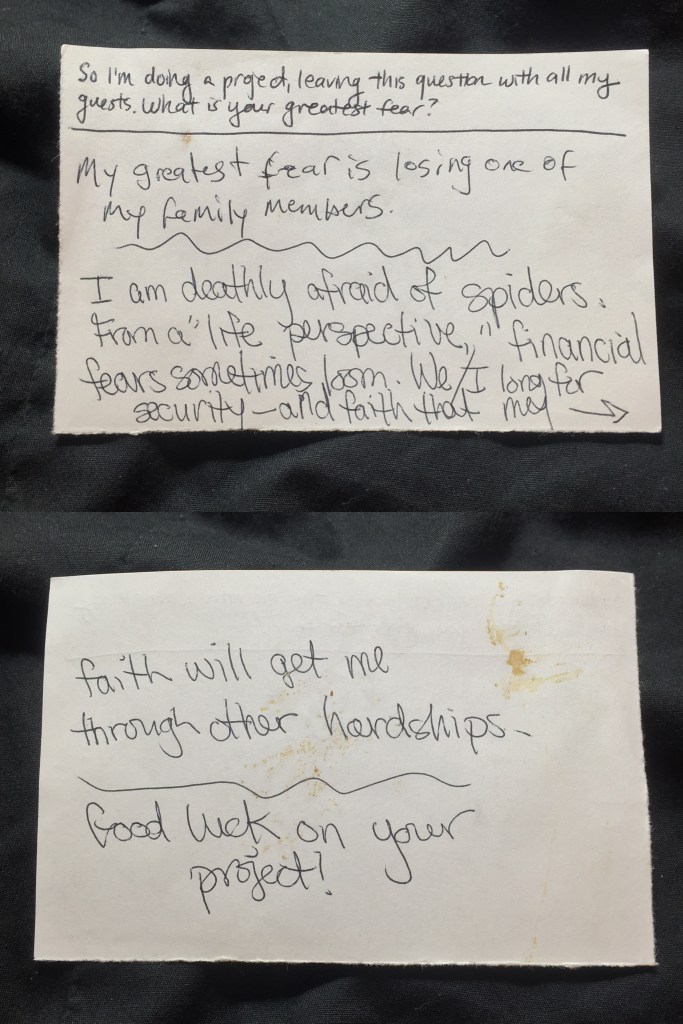 So I'm doing a project, leaving this question with all my
guests. What is your greatest fear?
My greatest fear is losing one of
my family members.
I am deathly afraid of spiders.
From a "life perspective," financial
fears sometimes loom. We/I long for
security – and faith that my →
faith will get me
through other hardships.
Good luck on your
project!